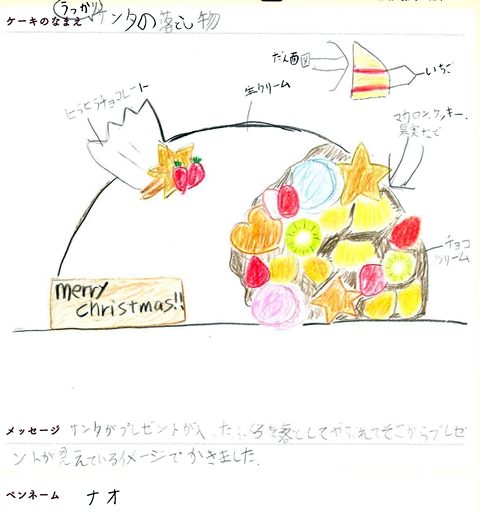 うっかり
ケーキのなまえ サンタの落とし物
だん面図
いちご
ヒラヒラチョコレート
生クリーム
マカロン、クッキー、
果実など
チョコ
クリーム
merry
christmas!!
メッセージ サンタがプレゼントが入ったふくろを落としてやぶれてそこからプレゼ
ントが見えているイメージでかきました。
ペンネーム ナオ